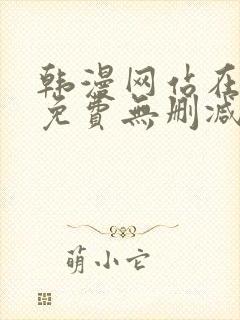 韩漫网站在
免費無刪减
萌小它